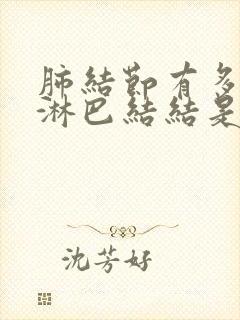 肺結節有多
淋巴結結是
沈芳好